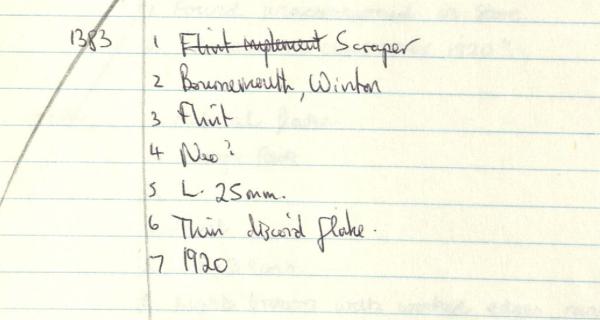 1383 1 Flint implement Scraper
2 Bournemouth, Winton
3 Flint
4 Neo?
5 L. 25mm.
6 Thin discoid flake.
7 1920